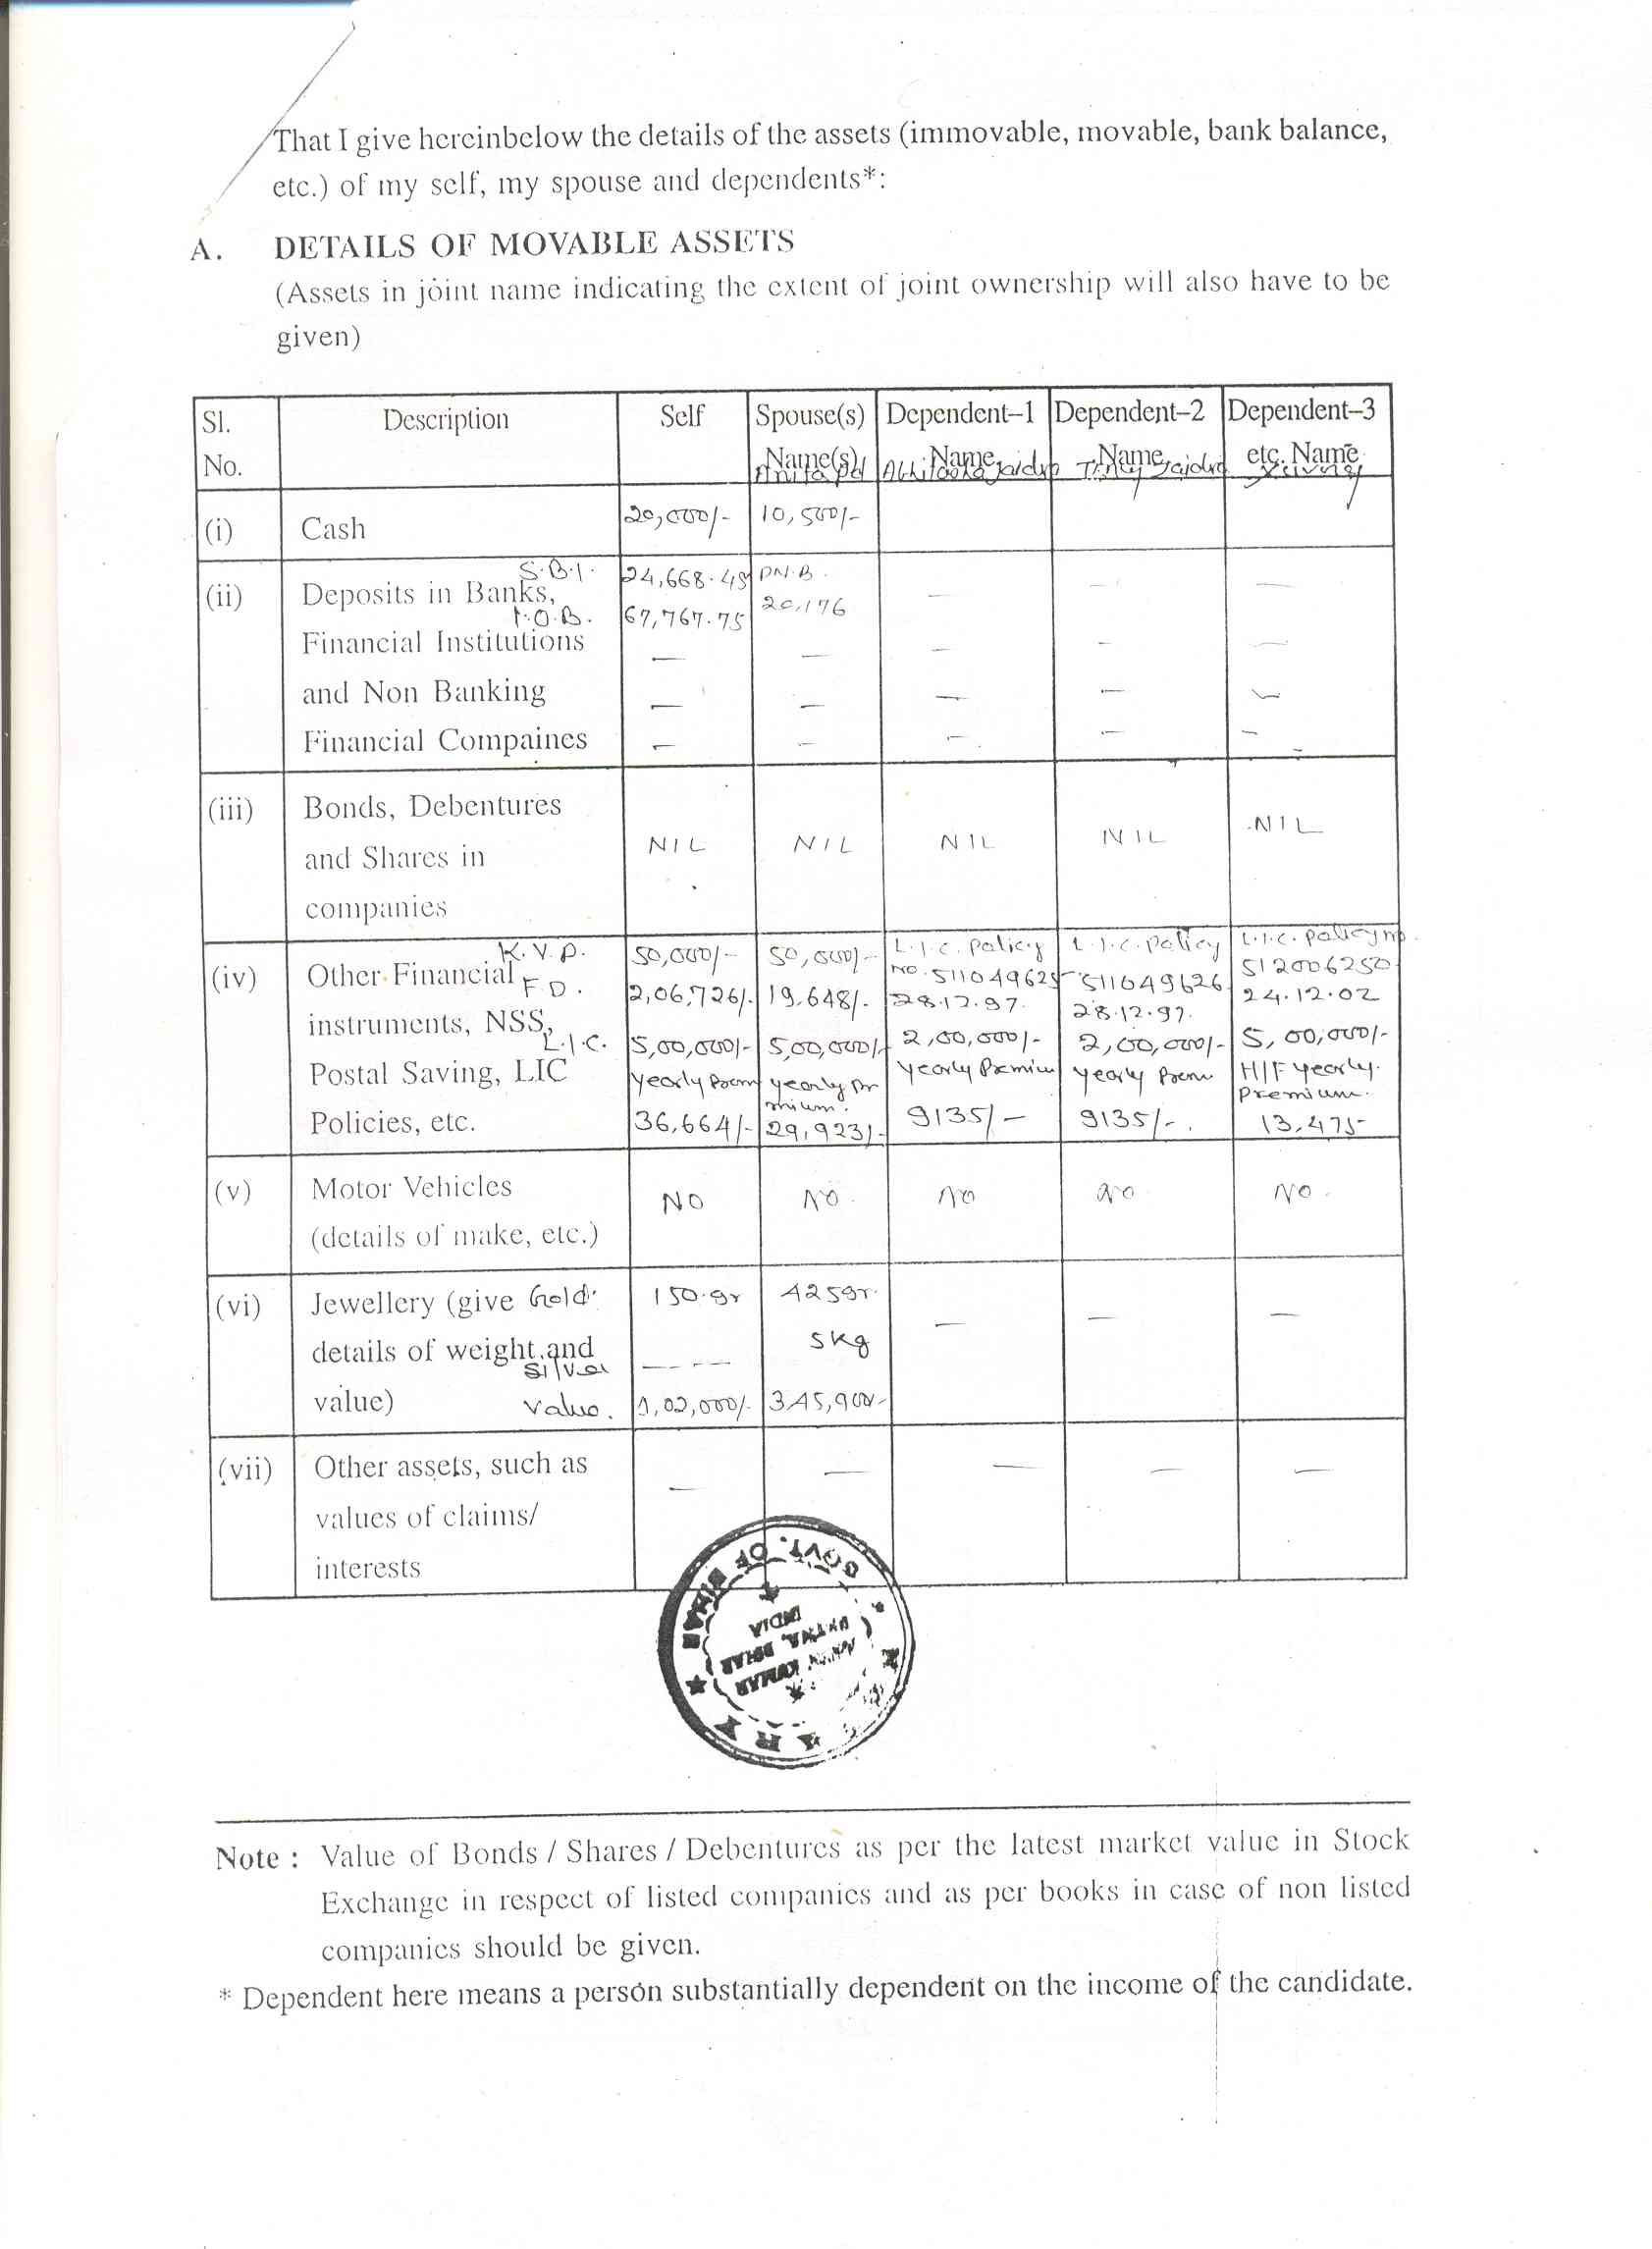 That I give hereinbelow the details of the assets (immovable, movable, bank balance,
etc.) of my self, my spouse and dependents*:
A. DETAILS OF MOVABLE ASSETS
(Assets in joint name indicating the extent of joint ownership will also have to be
given)
Sl. No. Description Self Spouse(s) Name(s) Dependent-1 Name Dependent-2 Name Dependent-3 etc. Name
(i) Cash 20,000/- 10,500/-
(ii) Deposits in Banks, S.B.I. 24,668.45 P.N.B.
I.O.B. 67,767.75 20,176
Financial Institutions — — — — —
and Non Banking — — — — —
Financial Compaines — — — — —
(iii) Bonds, Debentures
and Shares in NIL NIL NIL NIL NIL
companies
K.V.P. 50,000/- 50,000/- L.I.C. Policy L.I.C. Policy L.I.C. Policy no.
(iv) Other Financial F D. 2,06,726/- 19,648/- No. 511049625 511049626 512006250
28.12.97. 28.12.97. 24.12.02
instruments, NSS, L.I.C. 5,00,000/- 5,00,000/- 2,00,000/- 2,00,000/- 5,00,000/-
Postal Saving, LIC yearly Prem yearly Pr mium. yearly Premium yearly Prem H/F yearly. Premium.
Policies, etc. 36,664/- 29,923/- 9135/- 9135/-. 13,475
(v) Motor Vehicles NO NO NO NO NO
(details of make, etc.)
(vi) Jewellery (give Gold 150.gr 425gr.
details of weight and Silver — — 5kg — — —
value) Value. 1,02,000/- 3,45,900/-
(vii) Other assets, such as — — — — —
values of claims/
interests
GOVT. OF BIHAR
INDIA
PATNA, BIHAR
KUMAR
Note : Value of Bonds / Shares / Debentures as per the latest market value in Stock
Exchange in respect of listed companies and as per books in case of non listed
companies should be given.
* Dependent here means a person substantially dependent on the income of the candidate.